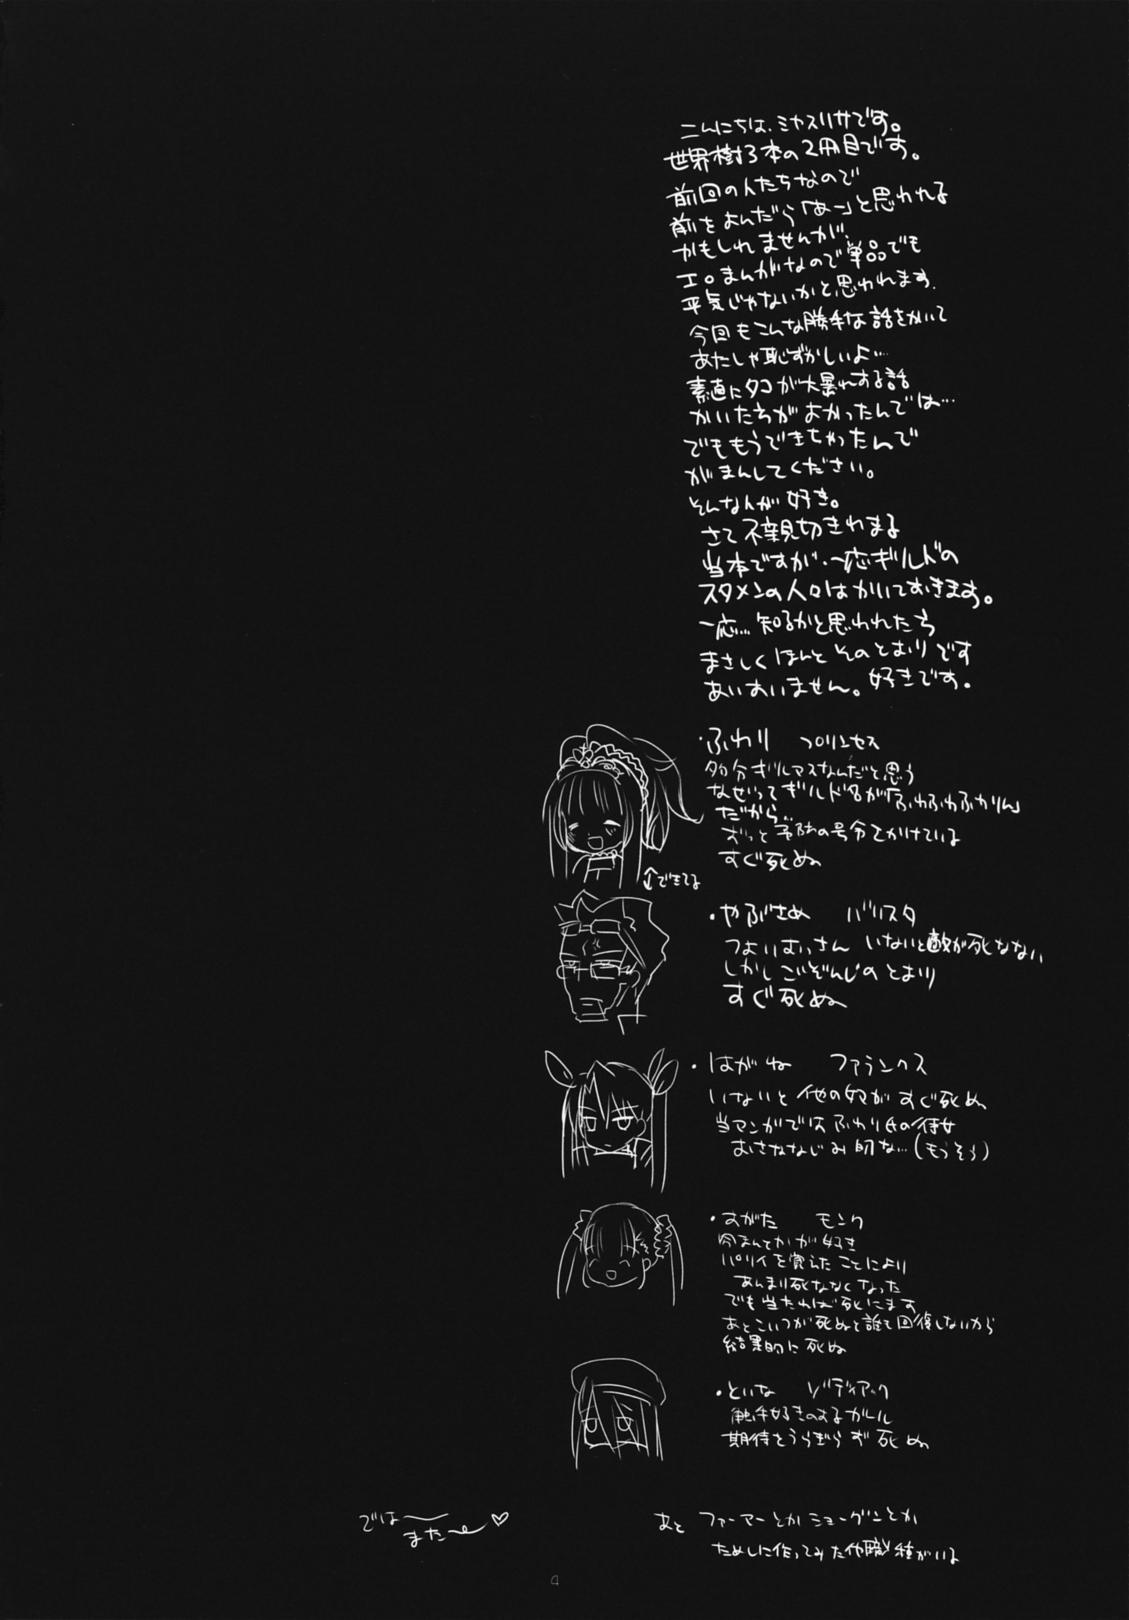 こんにちは、ミヤスリサです。
世界樹3本の2冊目です。
前回の人たちなので
前をよんだら「あー」と思われる
かもしれませんが、
エロまんがなので単品でも
平気じゃないかと思われます。
今回もこんな勝手な話をかいて
あたしゃ恥ずかしいよ…
素直にタコが大暴れする話
かいたらがよかったんでは…
でももうできちゃったんで
がまんしてください。
そんな人が好き。
さて不親切きわまる
当本ですが、一応ギルドの
スタメンの人々はかいておきます。
一応…知るかと思われたら
まさしくほんとそのとおりです
あいすいません。好きです。
・ふわり プリンセス
多分ギルマスなんだと思う
なぜってギルド名が「ふわふわふわりん」
だから…
ずっと予防の号令をかけている
すぐ死ぬ
↑↓できてる
・やぶさめ バリスタ
つよいおっさん いないと敵が死なない
しかしごぞんじのとおり
すぐ死ぬ
・はがね ファランクス
いないと他の奴がすぐ死ぬ
当マンガではふわり氏の侍女
おさななじみ的な…(もうそう)
・すがた モンク
肉まんとかが好き
パリイを覚えたことにより
あんまり死ななくなった
でも当たれば死にます
あとこいつが死ぬと誰も回復しないから
結果的に死ぬ
・といな ゾディアック
触手好きのするガール
期待をうらぎらず死ぬ
あと ファーマーとかショーグンとか
ためしに作ってみた他職種がいる
ではー
また〜♡